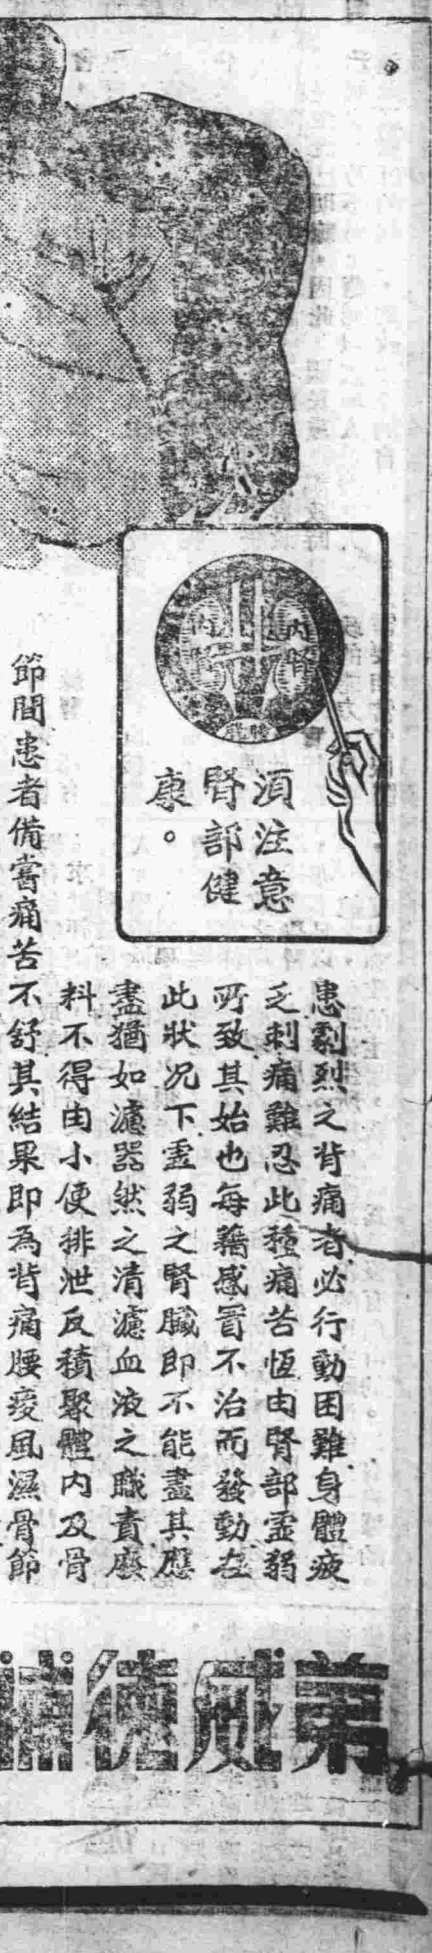 內腎
內腎
膀胱
須注意
腎部健
康。
患劇烈之背痛者必行動困難身體疲
乏刺痛難忍此種痛苦恆由腎部虛弱
所致其始也每藉感冒不治而發動在
此狀况下虛弱之腎臟即不能盡其應
盡猶如濾器然之清濾血液之職責廢
料不得由小便排泄反積聚體內及骨
節間患者備嘗痛苦不舒其結果即為背痛腰痠風濕骨節
第威德補